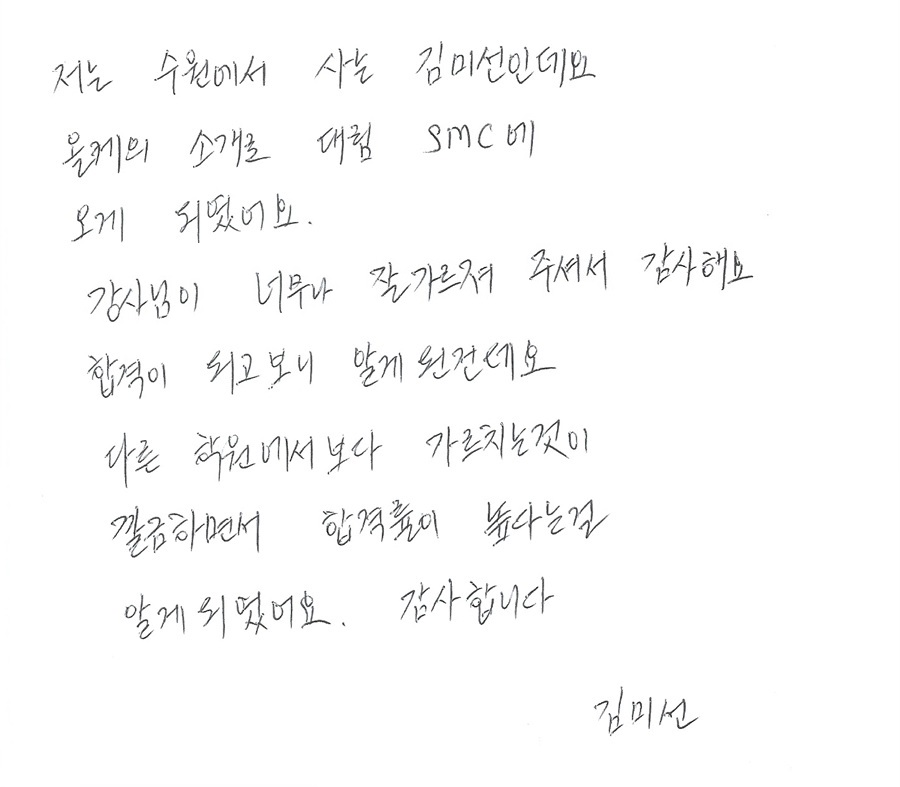 저는 수원에서 사는 김미선인데요
올케의 소개로 대림 SMC에
오게 되였어요.
강사님이 너무나 잘가르져 주셔서 감사해요
합격이 되고보니 알게된건데요
다른 학원에서보다 가르치는것이
깔금하면서 합격률이 높다는걸
알게되였어요. 감사합니다
김미선